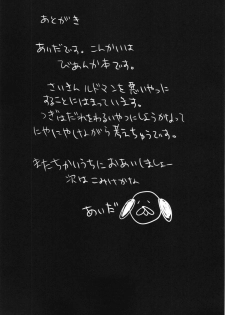 あとがき
あいだです。こんかいは
びあんか本です。
さいきん ルドマンを悪いやつに
することにはまっています。
つぎはだれをわるいやつにしようかなって
にやにやしながら考えちゅうです。
またちかいうちにおあいしましょー
次はこみけかな
あいだ